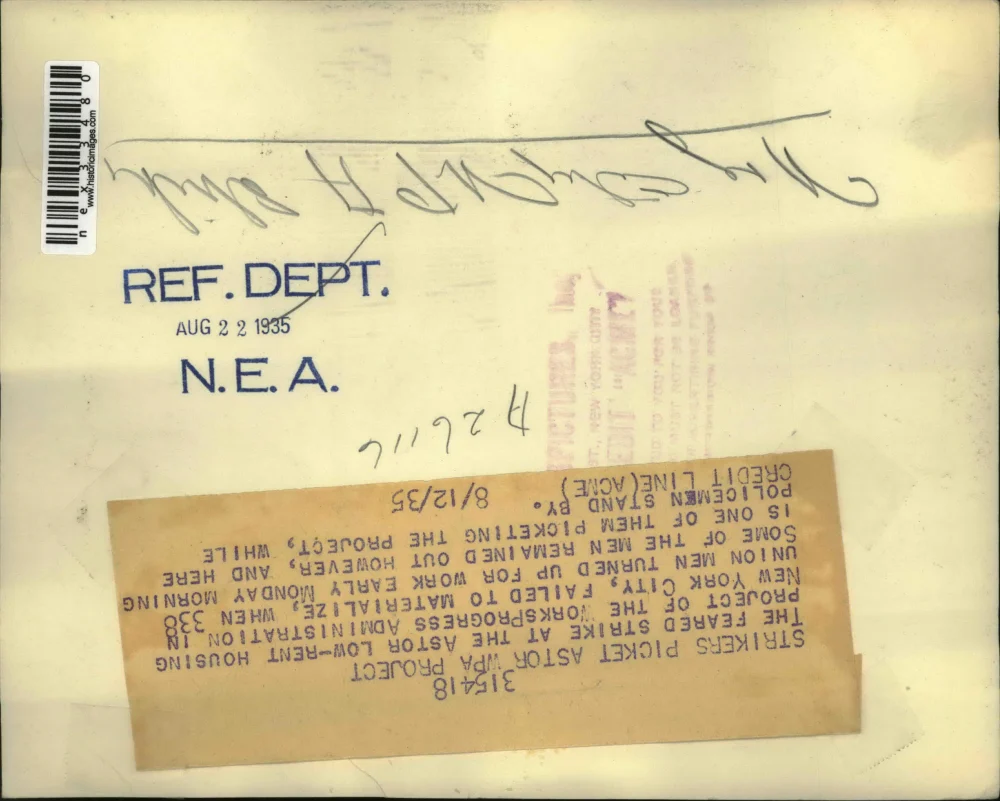 nex33480
www.historicimages.com
REF. DEPT.
AUG 22 1935
N. E. A.
A 26116
315418
STRIKERS PICKET ASTOR WPA PROJECT
THE FEARED STRIKE AT THE ASTOR LOW-RENT HOUSING
PROJECT OF THE WORKSPROGRESS ADMINISTRATION IN
NEW YORK CITY, FAILED TO MATERIALIZE, WHEN 330
UNION MEN TURNED UP FOR WORK EARLY MONDAY MORNING
SOME OF THE MEN REMAINED OUT HOWEVER, AND HERE
IS ONE OF THEM PICKETING THE PROJECT, WHILE
POLICEMEN STAND BY.
CREDIT LINE(ACME) 8/12/35